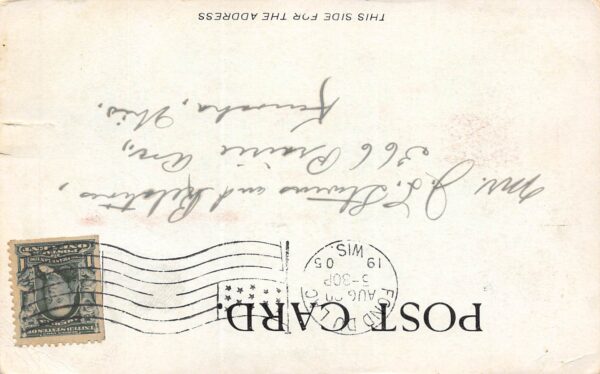 POST CARD.
FOND DU LAC
AUG
3-30P
19 05
WIS.
UNITED STATES OF
ONE CENT
Mr. J. L. Stevens and Relatives,
366 Prairie Ave,
Kenosha, Wis.
THIS SIDE FOR THE ADDRESS